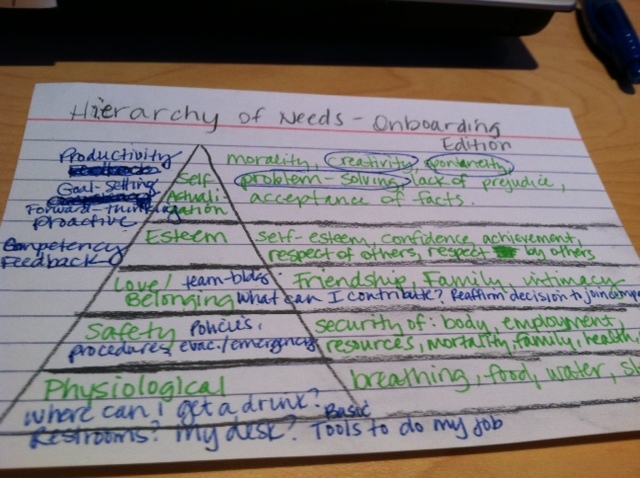 Hierarchy of Needs - Onboarding
Edition
Productivity
Goal-Setting
Forward-thinking
proactive
Competency
Feedback
Self
Actuali-
zation
morality, creativity, spontaneity,
problem-solving, lack of prejudice,
acceptance of facts.
Esteem
self-esteem, confidence, achievement,
respect of others, respect by others
Love/ team-bldg
Belonging What can I contribute? Reaffirm decision to join
Friendship, Family, intimacy
Safety Policies,
procedures, evac./emergency
security of: body, employment
resources, mortality, family, health,
Physiological
breathing, food, water,
Where can i get a drunk?
Restrooms? My desk? Basic Tools to do my job